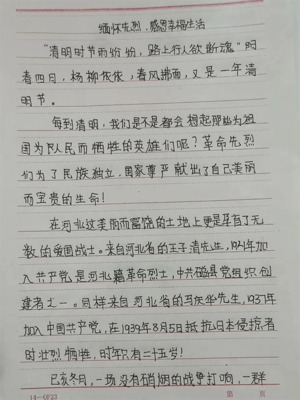 缅怀先烈，感恩幸福生活
“清明时节雨纷纷，路上行人欲断魂”阳
春四日，杨柳依依，春风拂面，又是一年清
明节。
每到清明，我们是不是都会想起那些为祖
国为人民而牺牲的英雄们呢？革命先烈
们为了民族独立，国家尊严献出了自己美丽
而宝贵的生命！
在河北这美丽而富饶的土地上更是孕育了无
数的爱国战士。来自河北省的王子清先生，1931年加
入共产党是河北籍革命烈士，中共磁县党组织创
建者之一。同样来自河北省的马庆华先生，1937年
加入中国共产党，在1939年8月5日抵抗日本侵掠者
时壮烈牺牲，时年只有二十五岁！
己亥冬月，一场没有硝烟的战争打响，一群
14-0F23
第 页